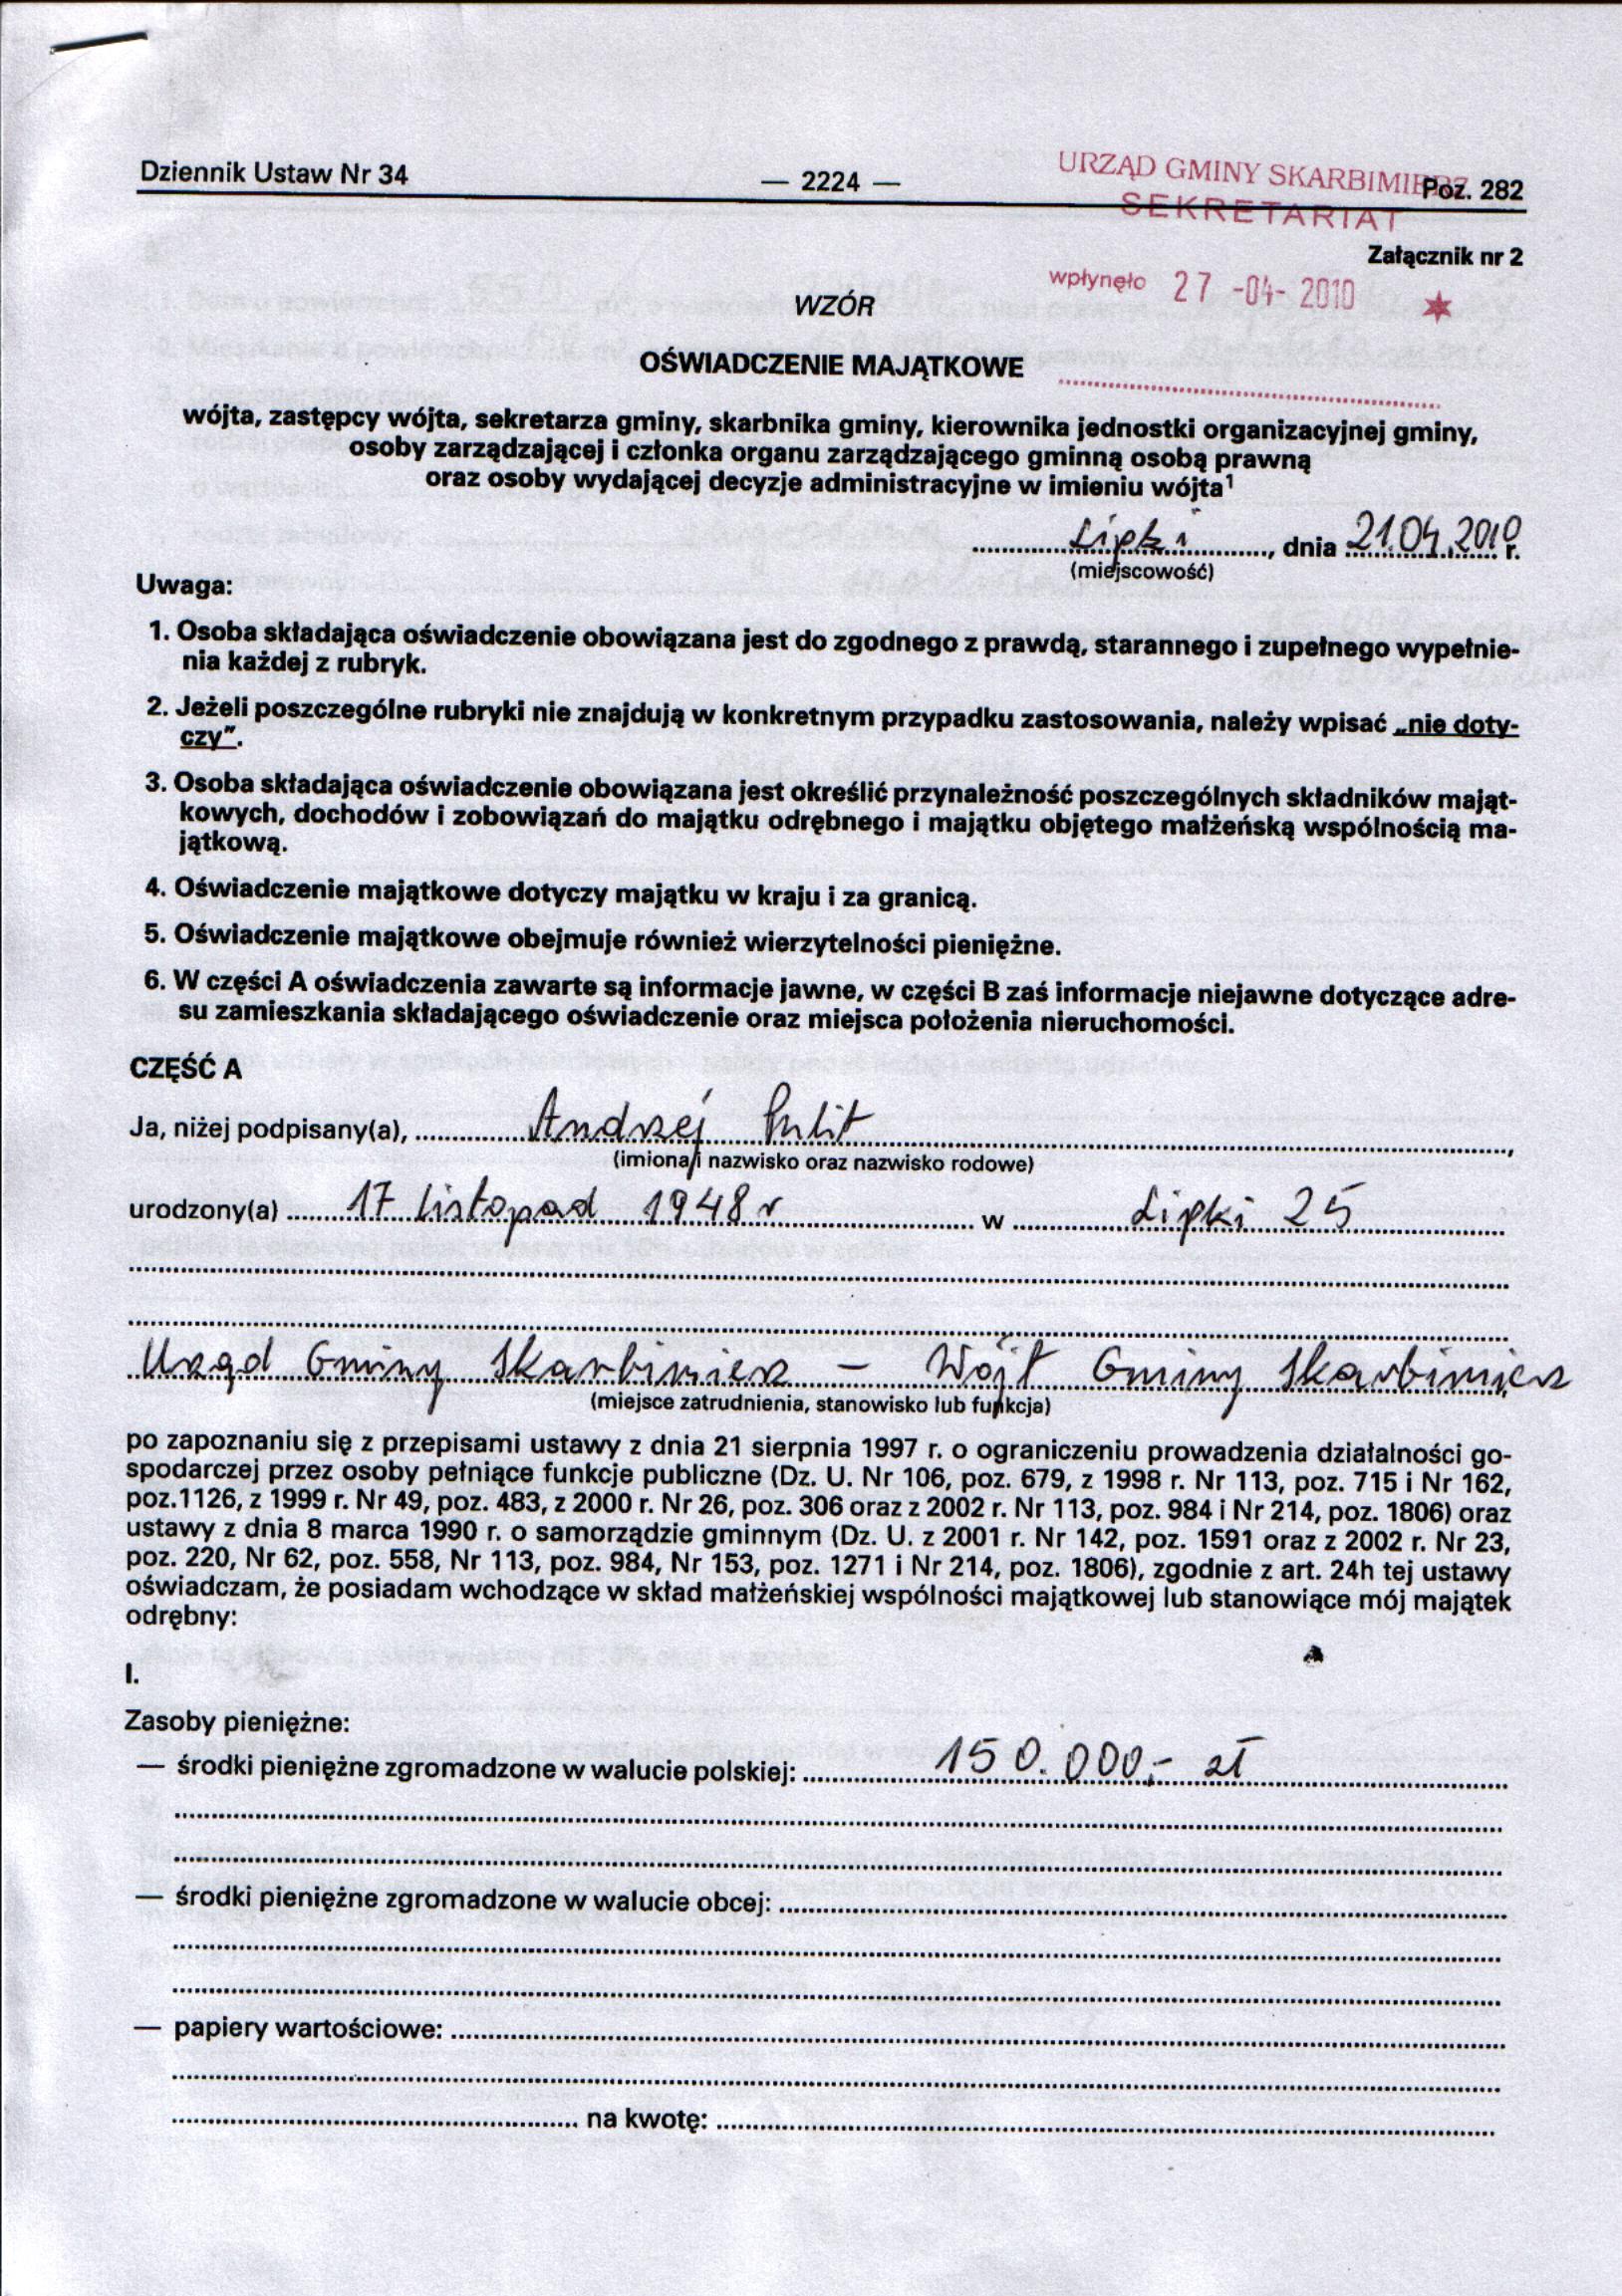 Dziennik Ustaw Nr 34
— 2224 —
URZĄD GMINY SKARBIMIERZ
Poz. 282
SEKRETARIAT
Załącznik nr 2
wpłynęło 27 -04- 2010
WZÓR
OŚWIADCZENIE MAJĄTKOWE
wójta, zastępcy wójta, sekretarza gminy, skarbnika gminy, kierownika jednostki organizacyjnej gminy,
osoby zarządzającej i członka organu zarządzającego gminną osobą prawną
oraz osoby wydającej decyzje administracyjne w imieniu wójta¹
Lipki, dnia 21.04.2010 r.
(miejscowość)
Uwaga:
1. Osoba składająca oświadczenie obowiązana jest do zgodnego z prawdą, starannego i zupełnego wypełnie-
nia każdej z rubryk.
2. Jeżeli poszczególne rubryki nie znajdują w konkretnym przypadku zastosowania, należy wpisać „nie doty-
czy”.
3. Osoba składająca oświadczenie obowiązana jest określić przynależność poszczególnych składników mająt-
kowych, dochodów i zobowiązań do majątku odrębnego i majątku objętego małżeńską wspólnością ma-
jątkową.
4. Oświadczenie majątkowe dotyczy majątku w kraju i za granicą.
5. Oświadczenie majątkowe obejmuje również wierzytelności pieniężne.
6. W części A oświadczenia zawarte są informacje jawne, w części B zaś informacje niejawne dotyczące adre-
su zamieszkania składającego oświadczenie oraz miejsca położenia nieruchomości.
CZĘŚĆ A
Ja, niżej podpisany(a), Andrzej Pulit,
(imiona i nazwisko oraz nazwisko rodowe)
urodzony(a) 17 listopad 1948 r w Lipki 25
Urząd Gminy Skarbimierz – Wójt Gminy Skarbimierz
(miejsce zatrudnienia, stanowisko lub funkcja)
po zapoznaniu się z przepisami ustawy z dnia 21 sierpnia 1997 r. o ograniczeniu prowadzenia działalności go-
spodarczej przez osoby pełniące funkcje publiczne (Dz. U. Nr 106, poz. 679, z 1998 r. Nr 113, poz. 715 i Nr 162,
poz.1126, z 1999 r. Nr 49, poz. 483, z 2000 r. Nr 26, poz. 306 oraz z 2002 r. Nr 113, poz. 984 i Nr 214, poz. 1806) oraz
ustawy z dnia 8 marca 1990 r. o samorządzie gminnym (Dz. U. z 2001 r. Nr 142, poz. 1591 oraz z 2002 r. Nr 23,
poz. 220, Nr 62, poz. 558, Nr 113, poz. 984, Nr 153, poz. 1271 i Nr 214, poz. 1806), zgodnie z art. 24h tej ustawy
oświadczam, że posiadam wchodzące w skład małżeńskiej wspólności majątkowej lub stanowiące mój majątek
odrębny:
I.
Zasoby pieniężne:
— środki pieniężne zgromadzone w walucie polskiej: 150.000,- zł
— środki pieniężne zgromadzone w walucie obcej:
— papiery wartościowe:
na kwotę: